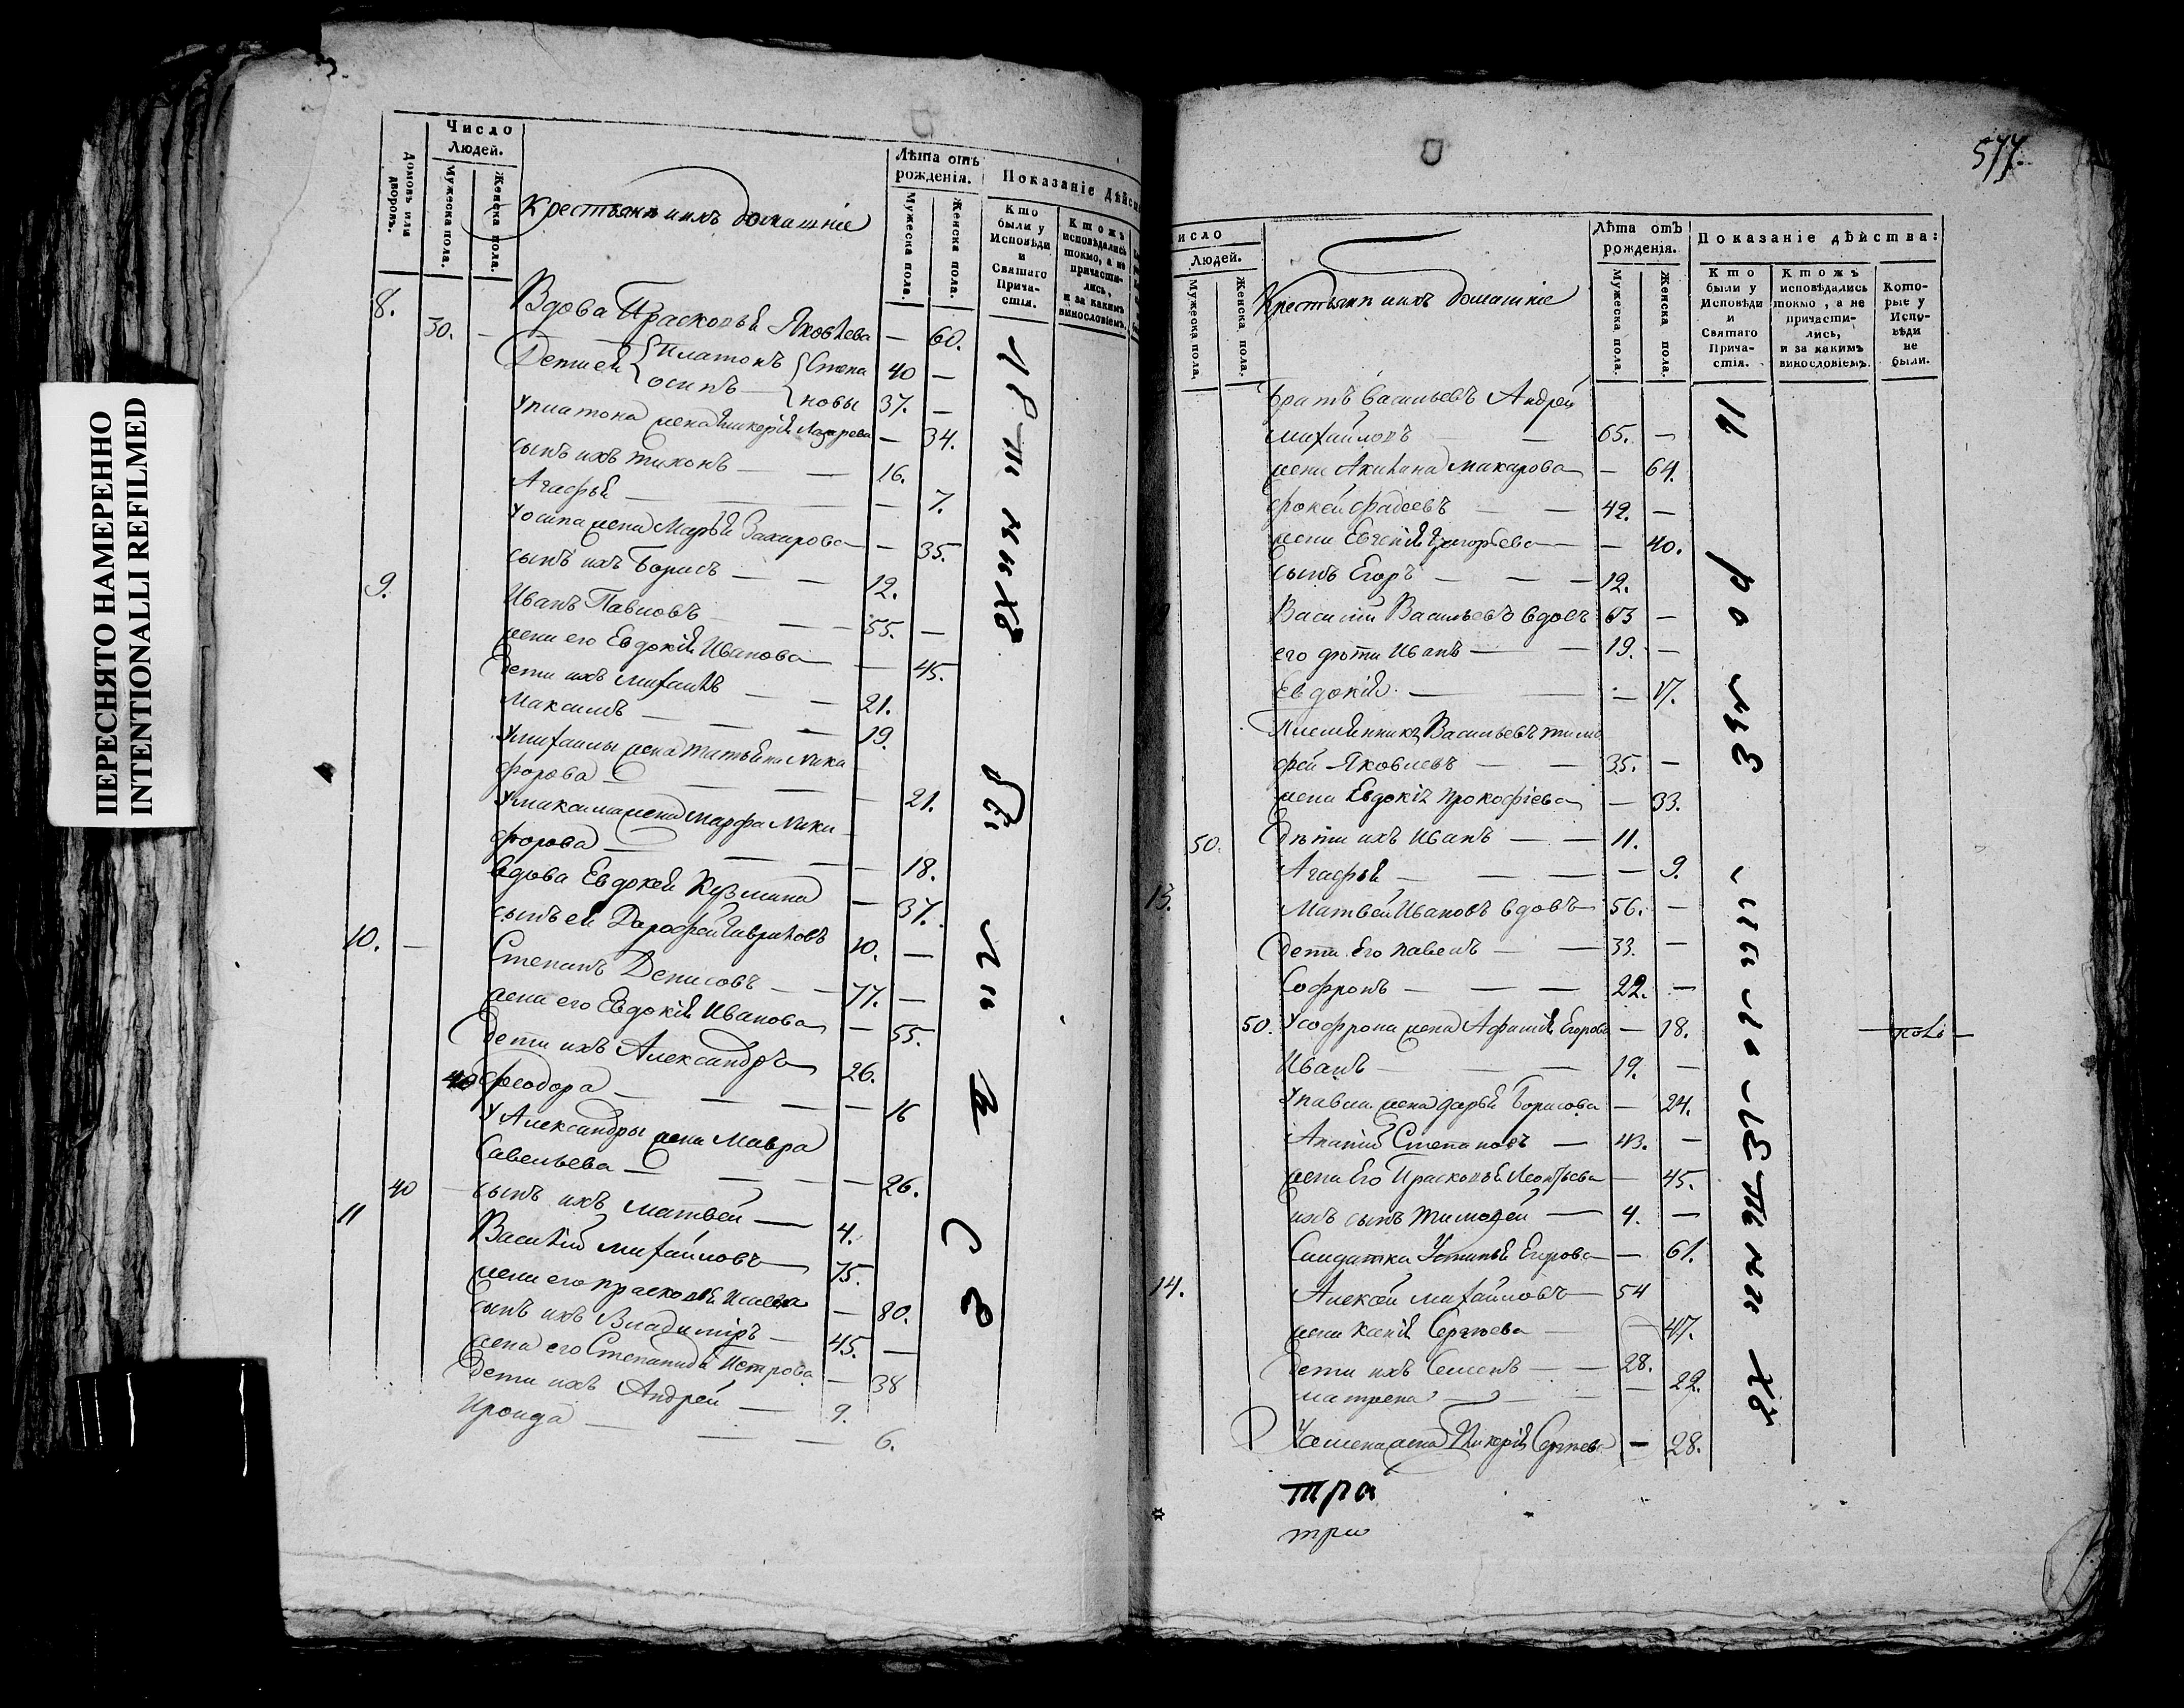 ПЕРЕСНЯТО НАМЕРЕННО
INTENTIONALLI REFILMED
Число
Людей.
Домовъ или дворовъ.
Мужеска пола.
Женска пола.
Крестьяне и ихъ домашніе
Лѣта отъ
рожденія.
Мужеска пола.
Женска пола.
Показаніе дѣйст
Кто были у Исповѣди и Святаго Причастія.
Ктожъ исповѣдались токмо, а не причастились, и за какимъ винословіемъ.
8. 30. — Вдова Прасковья Яковлева — 60.
Дети ея Платонъ Степа 40 —
осипъ новы 37. —
У платона жена Гликерія Лазарева — 34.
сынъ ихъ тихонъ — 16.
Агафья — 7.
У осипа жена Марья Захарова — 35.
сынъ ихъ Борисъ — 12.
9. Иванъ Павловъ — 55. —
жена его Евдокія Иванова — 45.
Дети ихъ михаилъ — 21.
Максимъ — 19.
У михаилы жена татьяна Ники
форова — 21.
У максима жена марфа Ники
форова — 18.
вдова Евдокея Кузмина — 37.
сынъ ея Дарофей Гавриловъ 10. —
10. — Степанъ Денисовъ — 77. —
жена его Евдокія Иванова — 55.
Дети ихъ Александръ 26.
40 феодора — 16
У Александры жена Мавра
Савельева — 26.
40 сынъ ихъ матвей — 4.
11 Василий михайловъ 75.
жена его прасковья Исаева — 80.
сынъ ихъ Владимиръ — 45. —
жена его Степанида Петрова — 38
Дети ихъ Андрей — 9.
Ироида — 6.
577.
исло
Людей.
Мужеска пола.
Женска пола.
Крестьяне и ихъ домашніе
Лѣта отъ
рожденія.
Мужеска пола.
Женска пола.
Показаніе дѣйства:
Кто были у Исповѣди и Святаго Причастія.
Ктожъ исповѣдались токмо, а не причастились, и за какимъ винословіемъ.
Которые у Исповѣди не были.
братъ васильевъ Андрей
михайловъ — 65. —
жена Акилина макарова — 64.
фокей фадеевъ — 42. —
жена Евгенія Григорьева — 40.
сынъ Егоръ — 12.
Василий Васильевъ вдовъ 63 —
его дѣти Иванъ — 19. —
Евдокія — 17.
Племянникъ Васильевъ тимо
фей Яковлевъ — 35. —
жена Евдокия прокофіева — 33.
50. Дѣти ихъ Иванъ — 11.
Агафья — 9.
13. Матвей Ивановъ вдовъ 56. —
Дети Его павелъ — 33. —
Софронъ — 22. —
50. У софрона жена Афимия Егорова — 18.
Иванъ — 19. —
У павла жена дарья Борисова — 24.
Ананий Степановъ — 43. —
жена Его Прасковья Леонтьева — 45.
ихъ сынъ тимофей — 4. —
Салдатка Устинья Егорова — 61.
14. Алексей михайловъ — 54
жена ксенія Сергѣева — 47.
Дети ихъ Семенъ — 28.
матрена — 22.
У Семена жена Гликерія Сергѣева — 28.
три